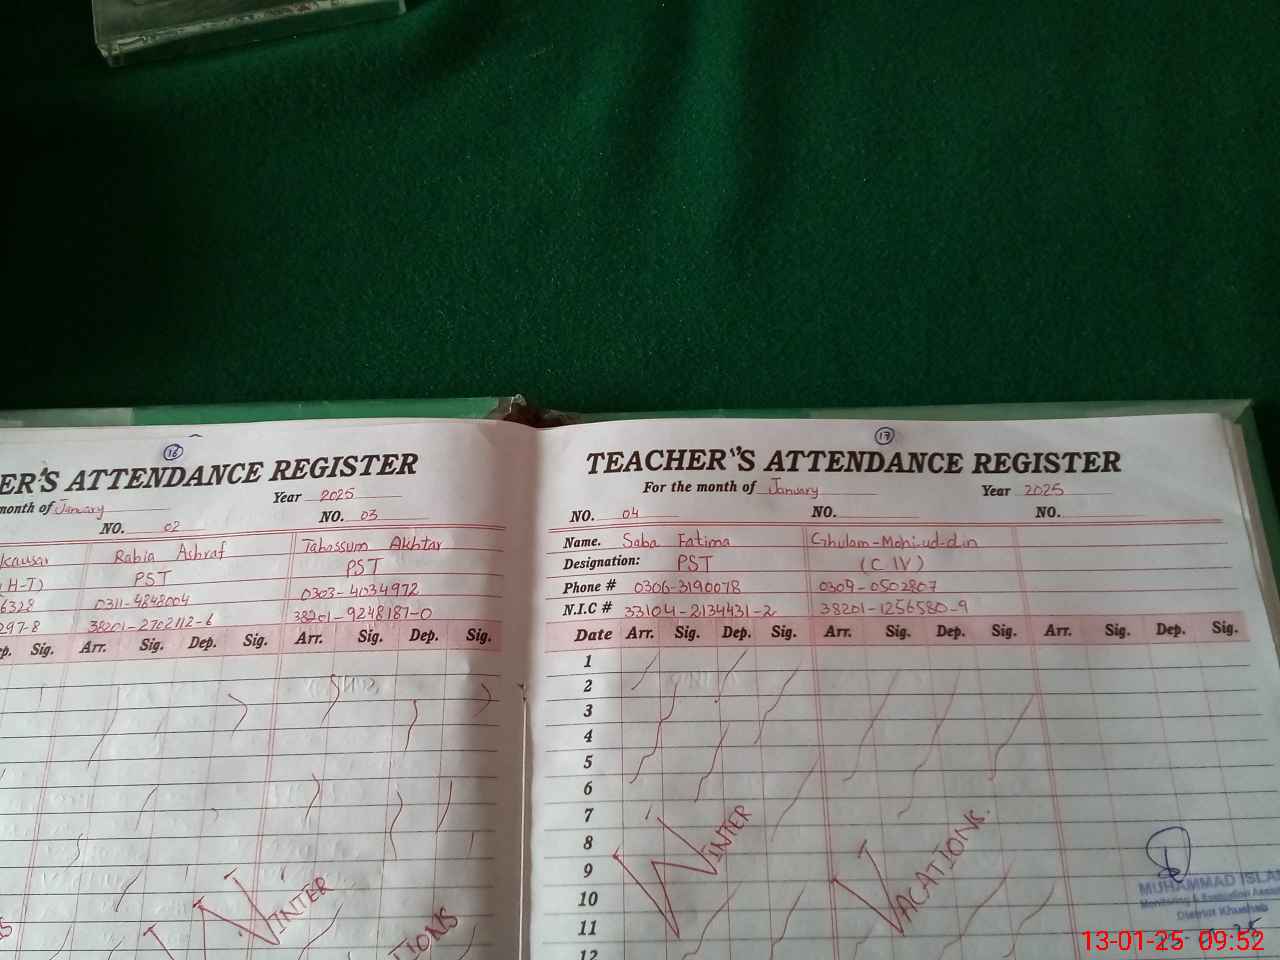 16
ER'S ATTENDANCE REGISTER
month of January Year 2025
NO. 02 NO. 03
kausar Rabia Ashraf Tabassum Akhtar
(H-T) PST PST
6328 0311-4848004 0303-4034972
297-8 38201-2702112-6 38201-9248187-0
ep. Sig. Arr. Sig. Dep. Sig. Arr. Sig. Dep. Sig.
WINTER
TIONS
17
TEACHER'S ATTENDANCE REGISTER
For the month of January Year 2025
NO. 04 NO. NO.
Name. Saba Fatima Ghulam-Mohi-ud-din
Designation: PST (C IV)
Phone # 0306-3190078 0309-0502807
N.I.C # 33104-2134431-2 38201-1256580-9
Date Arr. Sig. Dep. Sig. Arr. Sig. Dep. Sig. Arr. Sig. Dep. Sig.
1
2
3
4
5
6
7
8
9
10
11
12
WINTER VACATIONS.
MUHAMMAD ISLA
Monitoring & Evaluation Assis
District Khushab
13-01-25 09:52